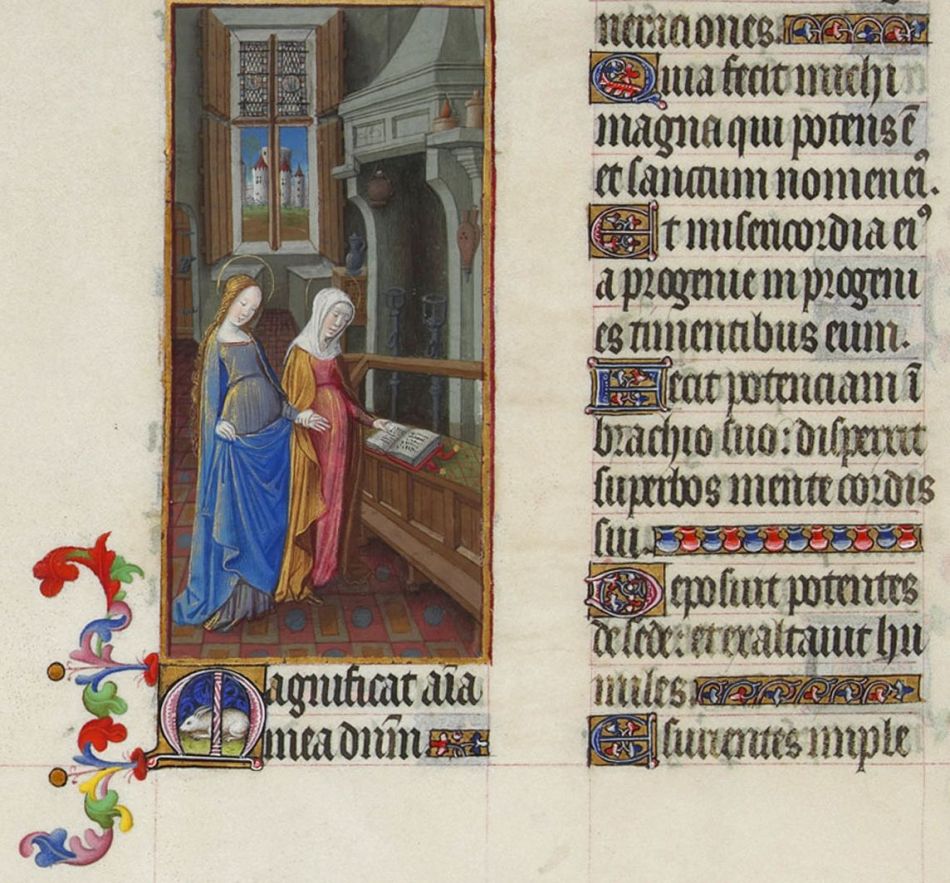 Magnificat aīa
mea dnm̄
neraciones.
Quia fecit michi
magna qui potens ē
et sanctum nomen eiꝰ.
Et misericordia eiꝰ
a progenie in progeni
es timentibus eum.
Fecit potenciam ī
brachio suo: dispersit
superbos mente cordis
sui.
Deposuit potentes
de sede: et exaltavit hu
miles.
Esurientes imple